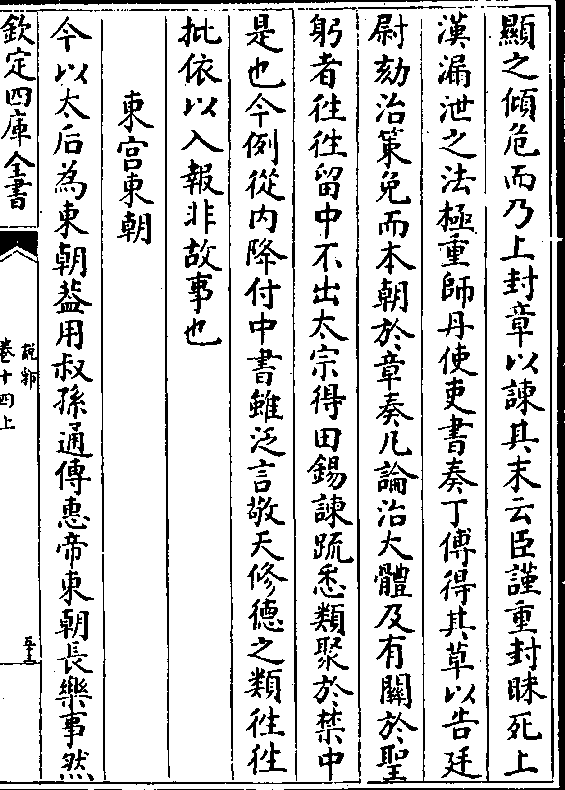 顯之傾危而乃上封章以諫其末云臣謹重封昧死上
漢漏泄之法極重師丹使吏書奏丁傅得其草以告廷
尉劾治策免而本朝於章奏凡論治大體及有關於聖
躬者徃徃留中不出太宗得田錫諫疏悉類聚於禁中
是也今例從内降付中書雖泛言敬天修德之類徃徃
批依以入報非故事也
東宫東朝
今以太后為東朝葢用叔孫通傳惠帝東朝長樂事然
欽定四庫全書
說郛
卷十四上
五十三